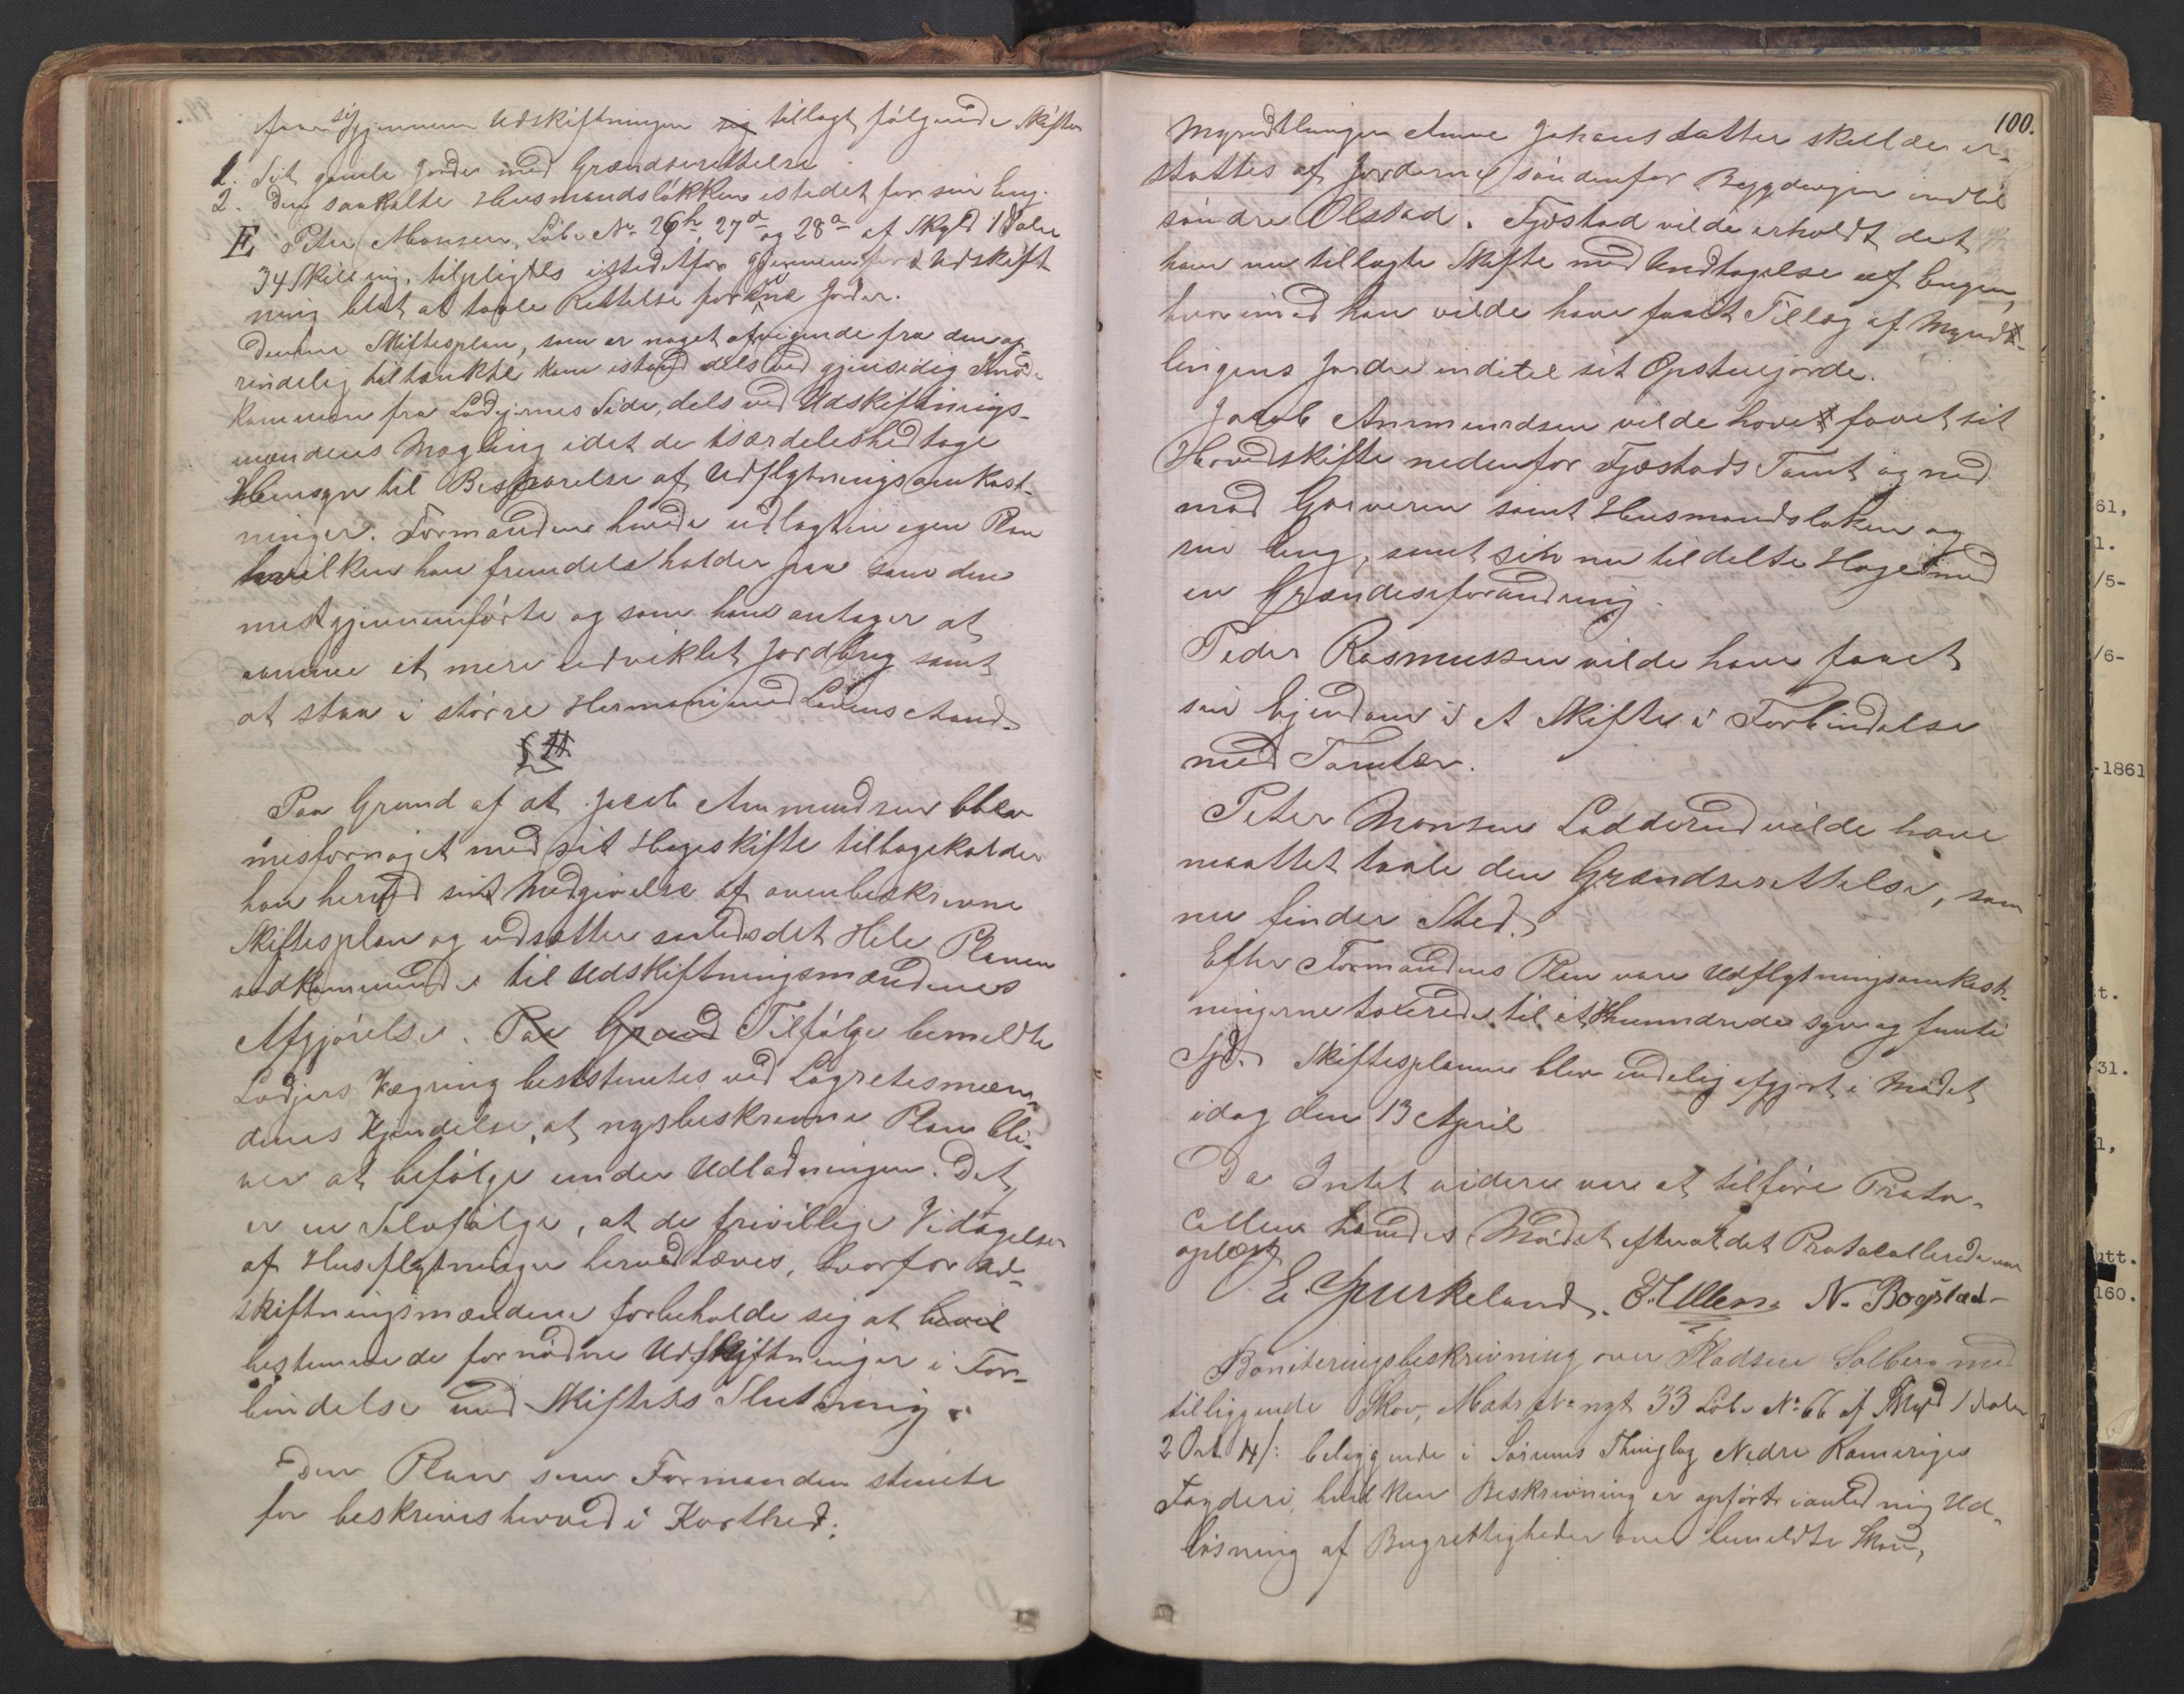 faar sig gjennem Udskiftningen sig tillagt følgende Skifter
1. Sit gamle Jorde med Grændserettelse
2. Den saakalte Husmandsløkken istedet for sin Eng.
E Peter Monsen, Løbe No 26h, 27d og 28a af Skyld 1 Daler
34 Skilling, tilpligtes istedetfor gjennemført Udskift
ning blot at taale Rettelse for sine Jorder.
Denne Skiftesplan, som er noget afvigende fra den op-
rindelig tiltænkte kom istand dels ved gjensidig Imøde
kommen fra Lodejernes Side, dels ved Udskiftnings-
mændenes Mægling idet de isærdeleshed toge
Hensyn til Besparelse af Udflytningsomkost-
ninger. Formanden havde udlagt en egen Plan
hvilken han fremdeles holder paa som den
mest gjennemførte og som han antager at
ramme et mere udviklet Jordbrug samt
at staa i større Harmoni med Lovens Aand.
§ 11
Paa Grund af at Jacob Ammundsen blev
misfornøjet med sit Hageskifte tilbagekalder
han herved sint Medgivelse af ovenbeskrevne
Skiftesplan og udsætter saaledes det Hele Planen
vedkommende til Udskiftningsmændenes
Afgjørelse. Paa Grund Tilfølge bemeldte
Lodejers Vægring beststemtes ved Lagretesmæn-
denes Kjendelse, at nysbeskrevne Plan bli-
ver at befølge under Udlodningen. Det
er en Selvfølge, at de frivillige Vedtagelser
af Husflytninger herved hæves, hvorfor Ud-
skiftningsmændene forbeholde sig at
bestemme de fornødne Udflytninger i For-
bindelse med Skiftets Slutning.
Den Plan som Formanden stemte
for beskrives herved i Korthed:
100.
Myrdtlingen Anne Johansdatter skulde er-
stattes af Jorderne søndenfor Bygdevejen indtil
søndre Olstad. Fjøstad vilde erholdt det
ham nu tillagte Skifte med Undtagelse af Engen,
hvorimod han vilde have faaet Tillæg af Myrdt-
lingens Jorder indtil sit Opstuejorde.
Jacob Ammundsen vilde havet faaet sit
Hovedskifte nedenfor Fjøstads Tomt og ned
mod Garveren samt Husmandsløken og
sin Eng, samt sin nu tildelte Hage med
en Grændseforandring.
Peder Rasmussen vilde have faaet
sin Ejendom i et Skifte i Forbindelse
med Tomten.
Peter Monsen Ladderud vilde have
maattet taale den Grændserettelse, som
nu finder Sted.
Efter Formandens Plan vare Udflytningsomkost-
ningerne taxerede til et Hunndrede syv og femti
Spd. Skiftesplanen blev endelig afgjort i Mødet
idag den 13 April
Da Intet videre var at tilføre Proto-
collen hævedes Mødet efterat det Protocollerede var
oplæst
E. Spurkeland. O. Ullern N. Bogstad
Boniteringsbeskrivning over Pladsen Solberg med
tilliggende Skov, Matr No nyt 33 Løbe No 66 af Skyld 1 Daler
2 Ort 14/: beliggende i Sørums Thinglag Nedre Romeriges
Fogderi, hvilken Beskrivning er opført i anledning Ud-
løsning af Brugrettigheder over bemeldte Skov,
61,
1.
/5-
/6-
-1861
t.
31.
1,
utt.
160.